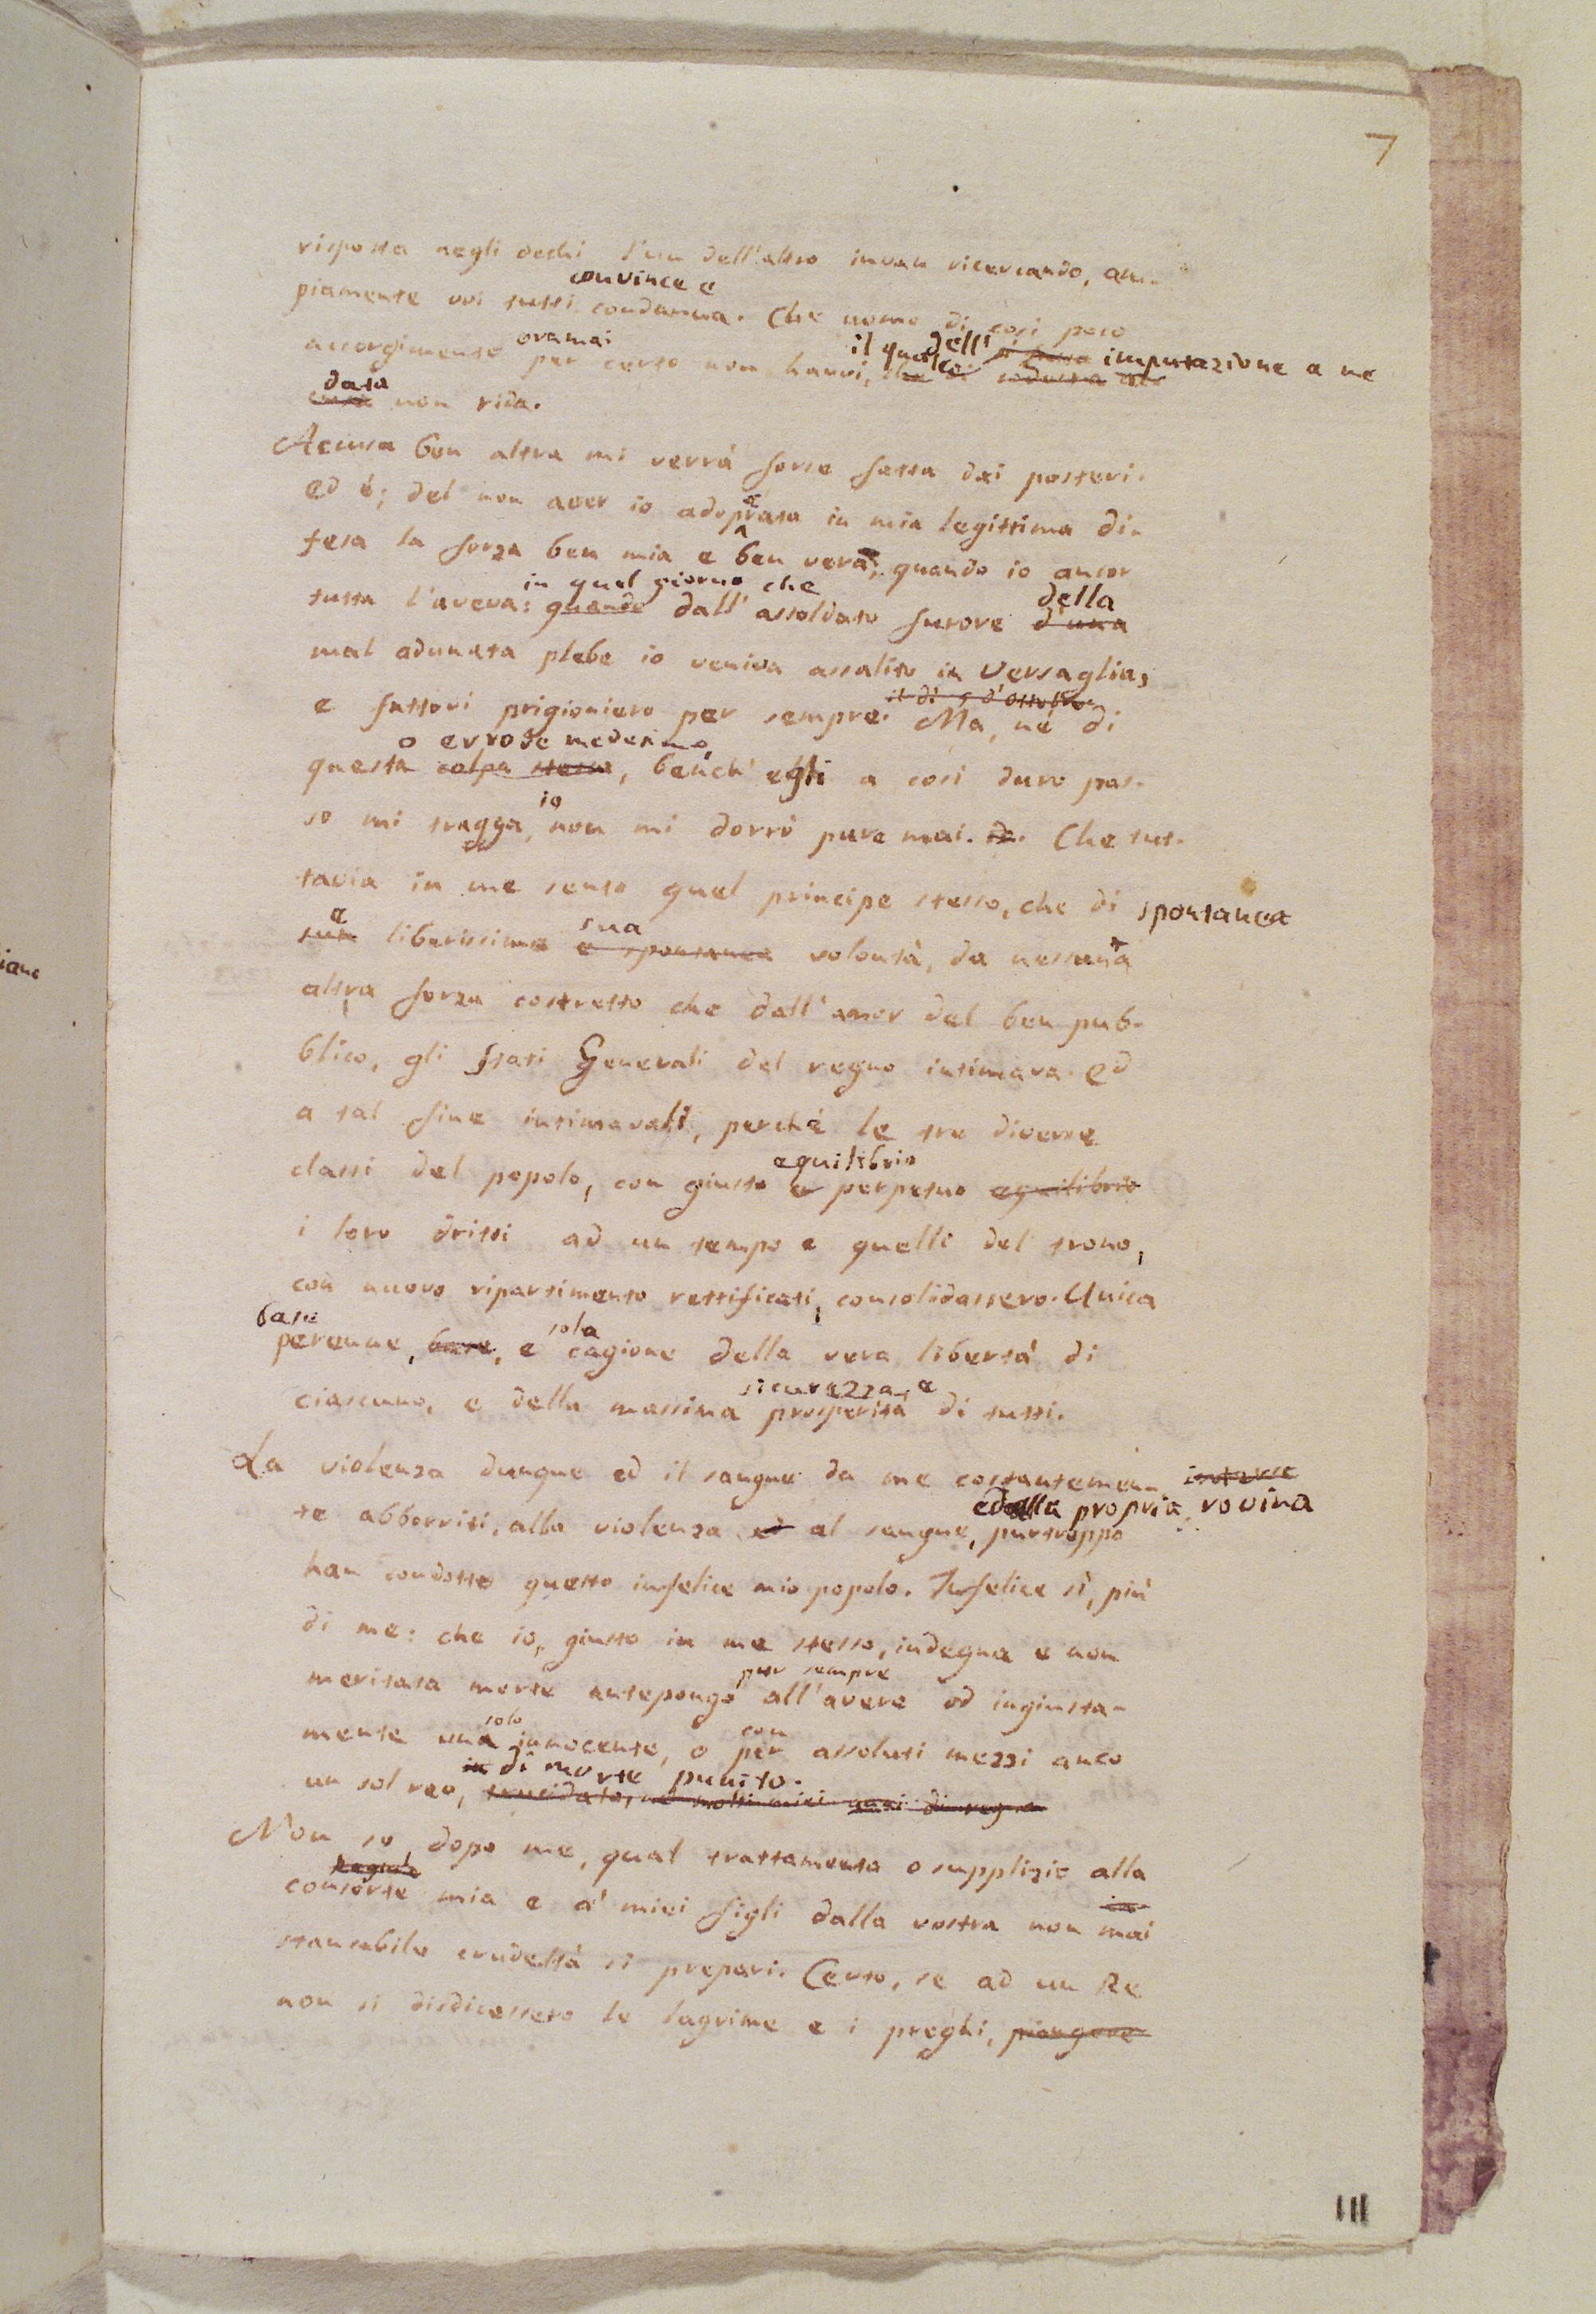 7
risposta negli occhi l'un dell'altro invan ricercando, am-
convince e
piamente voi tutti condanna. Che uomo di così poco
oramai il quale dell' imputazione a me
accorgimento per certo non havvi, che di
data
non rida.
Accusa ben altra mi verrà forse fatta dai posteri.
ed è; del non aver io adoprata in mia legittima di-
e
fesa la forza ben mia e ben vera; quando io ancor
in quel giorno che della
tutta l'aveva: quando dall' assoldato furore d'una
mal adunata plebe io veniva assalito in Versaglia,
il dì 5 d'ottobre
e fattovi prigioniero per sempre. Ma, nè di
o errore medesimo,
questa colpa stessa, bench' egli a così duro pas-
io
so mi tragga, non mi dorrò pure mai. Che tut-
tavia in me sento quel principe stesso, che di spontanea
e sua
sua liberissima e spontanea volontà, da nessuna
altra forza costretto che dall' amor del ben pub-
blico, gli Stati Generali del regno intimava. ed
a tal fine intimavali, perchè le tre diverse
equilibrio
classi del popolo, con giusto e perpetuo equilibrio
i loro dritti ad un tempo e quelli del trono,
con nuovo ripartimento rettificati, consolidassero. Unica
base sola
perenne, base, e cagione della vera libertà di
sicurezza, e
ciascuno, e della massima prosperità di tutti.
La violenza dunque ed il sangue da me costantemen-
ed alla propria rovina
te abborriti, alla violenza ed al sangue, purtroppo
han condotto questo infelice mio popolo. Infelice sì, più
di me: che io, giusto in me stesso, indegna e non
per sempre
meritata morte antepongo all'avere od ingiusta-
solo con
mente un innocente, o per assoluti mezzi anco
in di morte punito.
un sol reo, trucidato, ne' molti miei anni di regno
Non so dopo me, qual trattamento o supplizio alla
Regina
consorte mia e a' miei figli dalla vostra non mai
stancabile crudeltà si prepari. Certo, se ad un Re
non si disdicessero le lagrime e i preghi, piangere
III